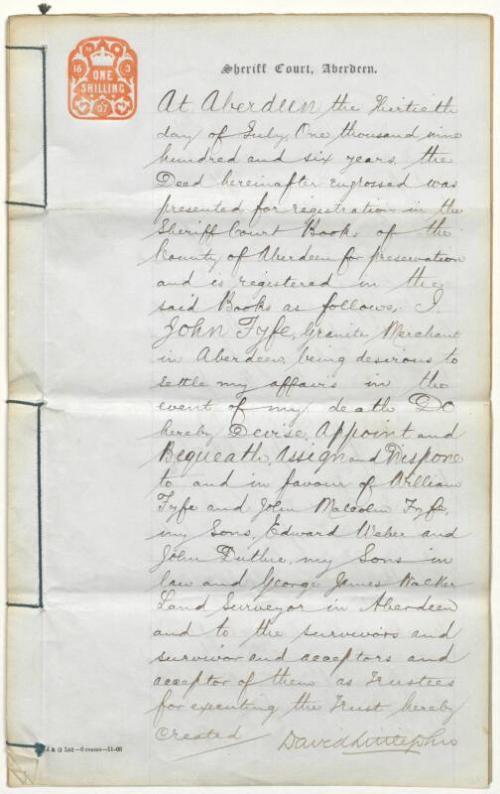 16 3
ONE
SHILLING
Sheriff Court, Aberdeen.
At Aberdeen the thirtieth
day of July One thousand nine
hundred and six years, the
Deed hereinafter engrossed was
presented for registration in the
Sheriff Court Books of the
County of Aberdeen for preservation
and is registered in the
said Books as follows, I
John Fyfe, Granite Merchant
in Aberdeen, being desirous to
settle my affairs in the
event of my death Do
hereby Devise, Appoint and
Bequeath, Assign and Dispone
to and in favour of William
Fyfe and John Malcolm Fyfe,
my Sons, Edward Weber and
John Duthie, my Sons in
law and George James Walker
Land Surveyor in Aberdeen
and to the survivors and
survivor and acceptors and
acceptor of them as Trustees
for executing the Trust hereby
Created David